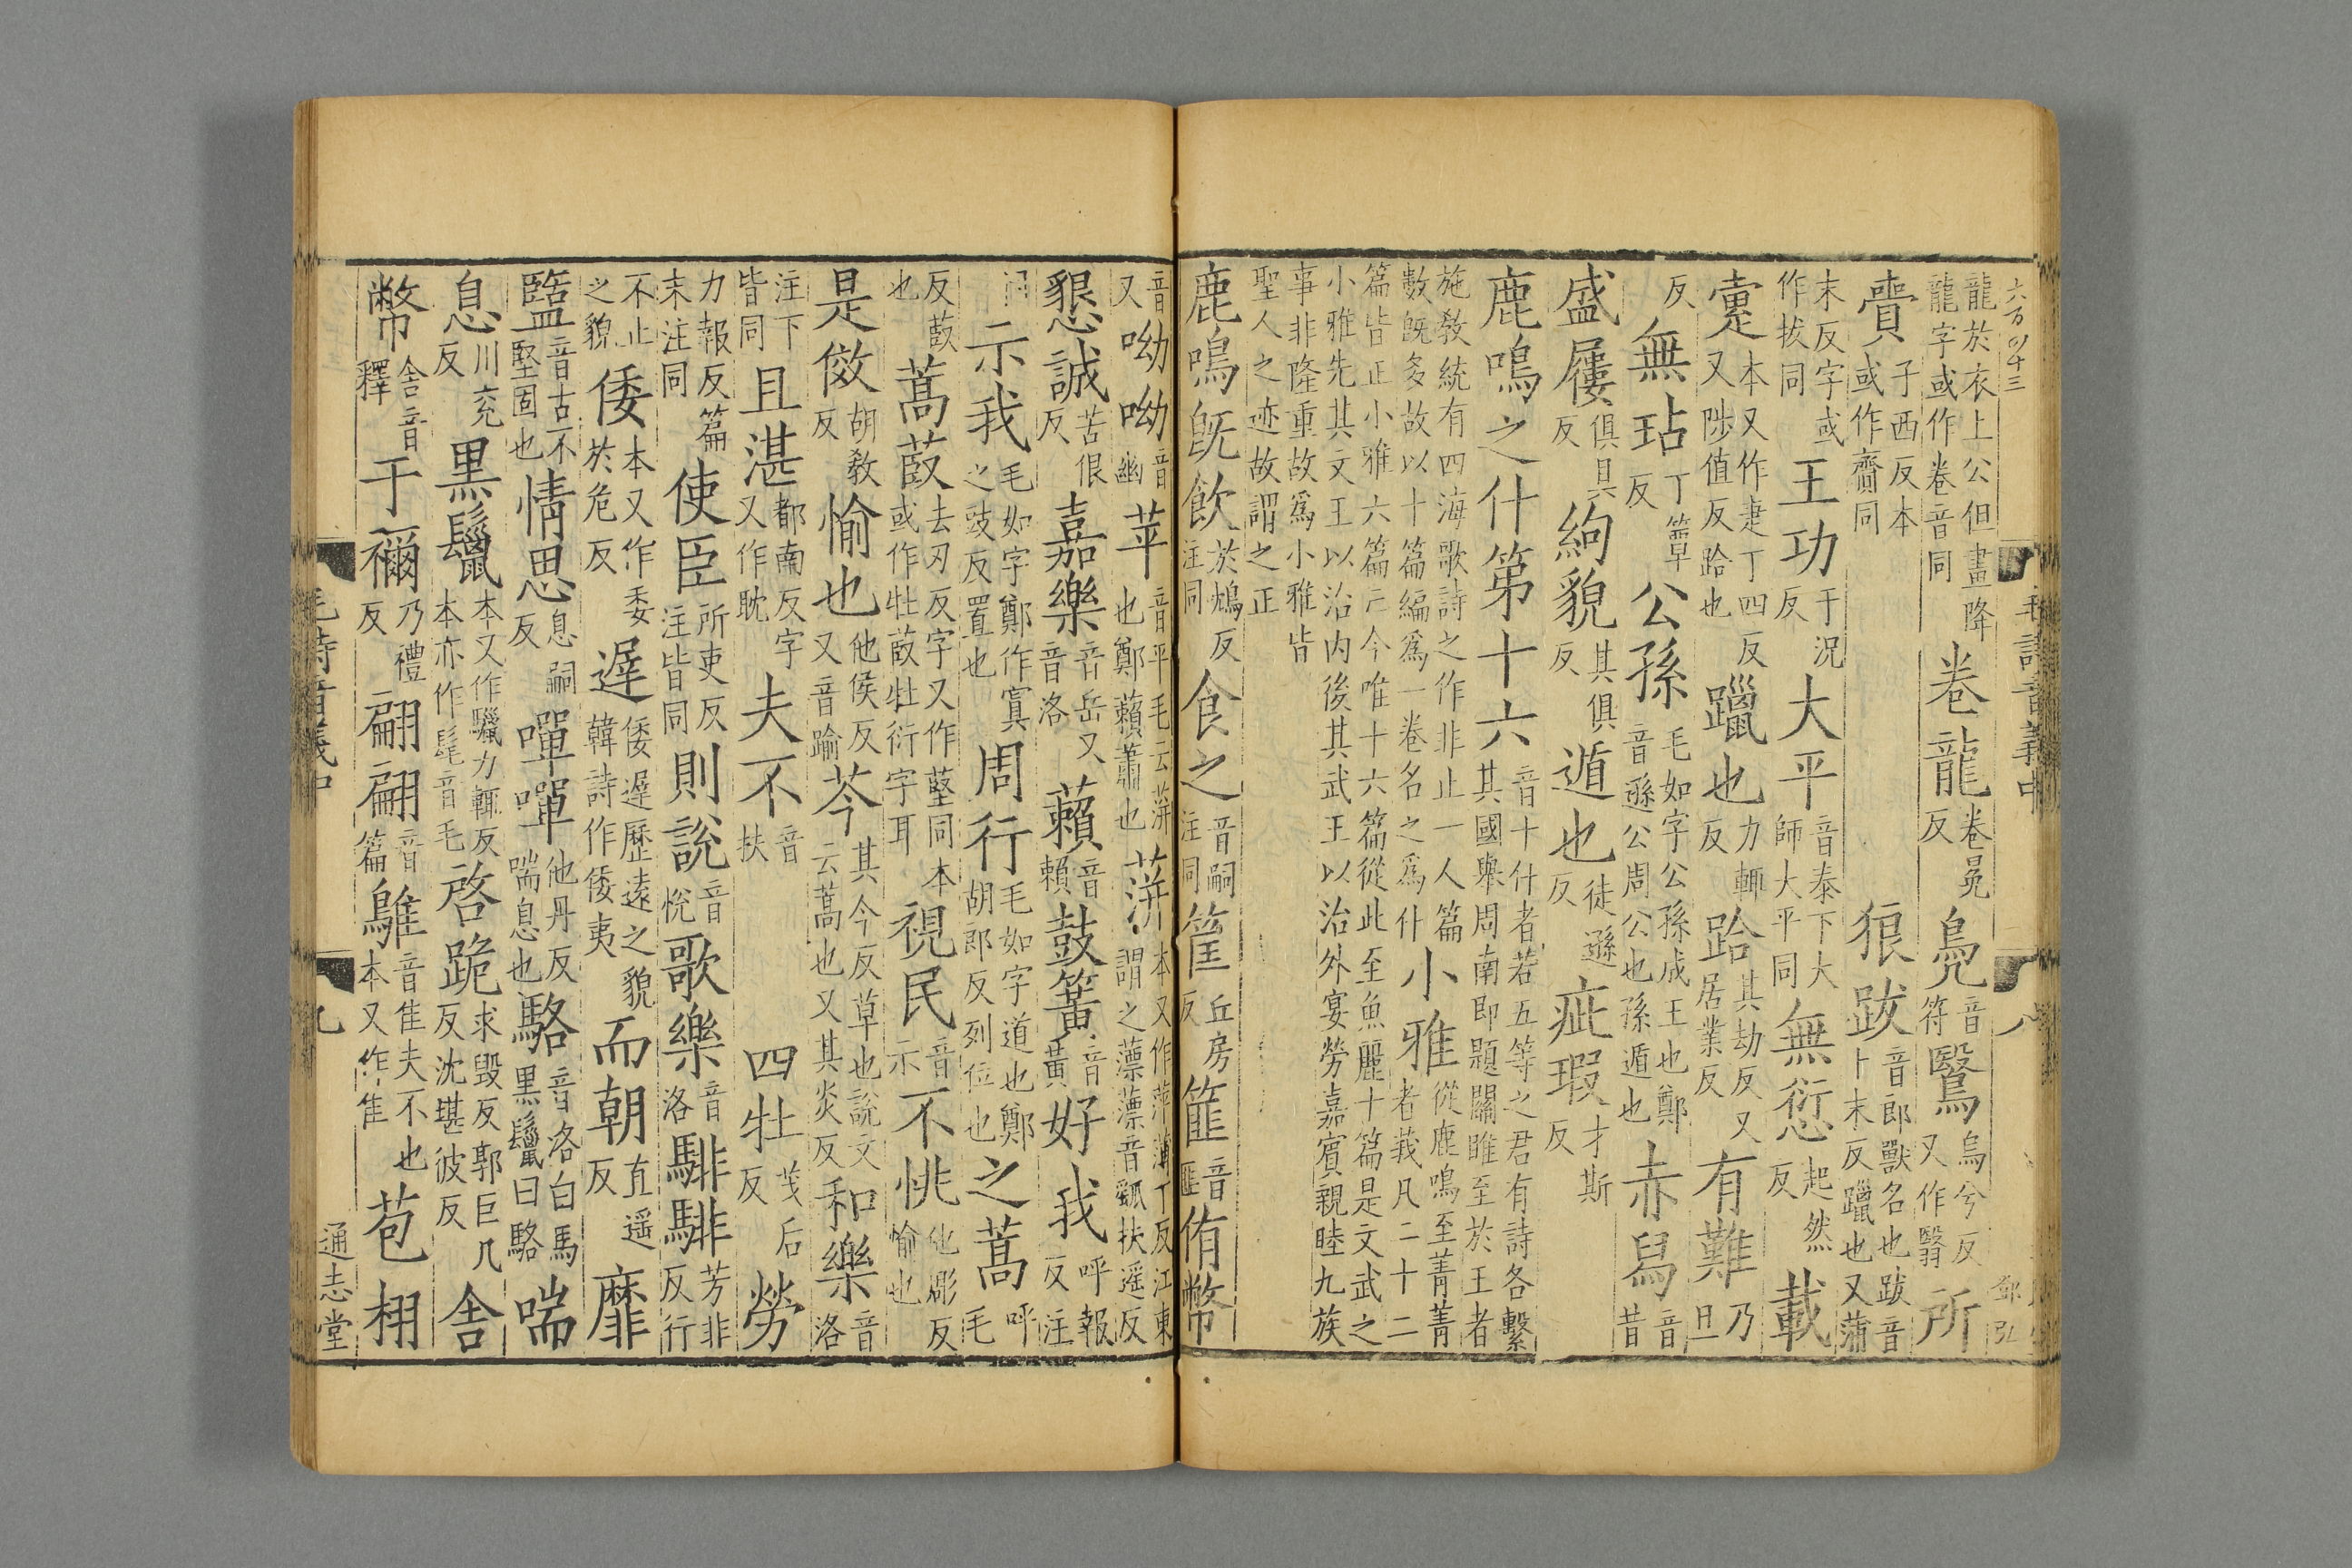 六百四十三
毛詩音義中
八
鄧弘
龍於衣上公但畫降龍字或作卷音同卷龍卷冕反鳧音符鷖烏兮反又作翳所
賷子西反本或作齎同狼跋音郎獸名也跋音卜末反躐也又蒲
末反字或作拔同王功于況反大平音泰下大師大平同無愆起然反載
疐本又作疌丁四反又陟值反跲也躐也力輒反跲其劫反又居業反有難乃旦
反無玷丁簟反公孫毛如字公孫成王也鄭音遜公周公也孫遁也赤舄音昔
盛屨俱具反絇貌其俱反遁也徒遜反疵瑕才斯反
鹿鳴之什第十六音十什者若五等之君有詩各繫其國舉周南即題關雎至於王者
施敎統有四海歌詩之作非止一人篇數旣多故以十篇編爲一卷名之爲什小雅從鹿鳴至菁菁者莪凡二十二
篇皆正小雅六篇亡今唯十六篇從此至魚麗十篇是文武之小雅先其文王以治内後其武王以治外宴勞嘉賓親睦九族
事非隆重故爲小雅皆聖人之迹故謂之正
鹿鳴旣飮於鴆反注同食之音嗣注同筐丘房反篚音匪侑幣
音又呦呦音幽苹音平毛云蓱也鄭藾蕭也蓱本又作萍薄丁反江東謂之薸薸音瓢扶遥反
懇誠苦很反嘉樂音岳又音洛藾音賴鼓簧音黃好我呼報反注
同示我毛如字鄭作寘之豉反置也周行毛如字道也鄭胡郎反列位也之蒿呼毛
反菣也蒿菣去刃反字又作藖同本或作牡菣牡衍字耳視民音示不恌他彫反愉也
是傚胡敎反愉也他侯反又音踰芩其今反草也說文云蒿也又其炎反和樂音洛
注下皆同且湛都南反字又作耽夫不音扶四牡茂后反勞
力報反篇末注同使臣所吏反注皆同則說音悅歌樂音洛騑騑芳非反行
不止之貌倭本又作委於危反遲倭遲歷遠之貌韓詩作倭夷而朝直遥反靡
盬音古不堅固也情思息嗣反嘽嘽他丹反喘息也駱音洛白馬黑鬣曰駱喘
息川兖反黑鬣本又作驖力輒反本亦作髦音毛啓跪求毀反郭巨几反沈堪彼反舎
幣舎音釋于禰乃禮反翩翩音篇鵻音隹夫不也本又作隹苞栩
毛詩音義中
九
通志堂